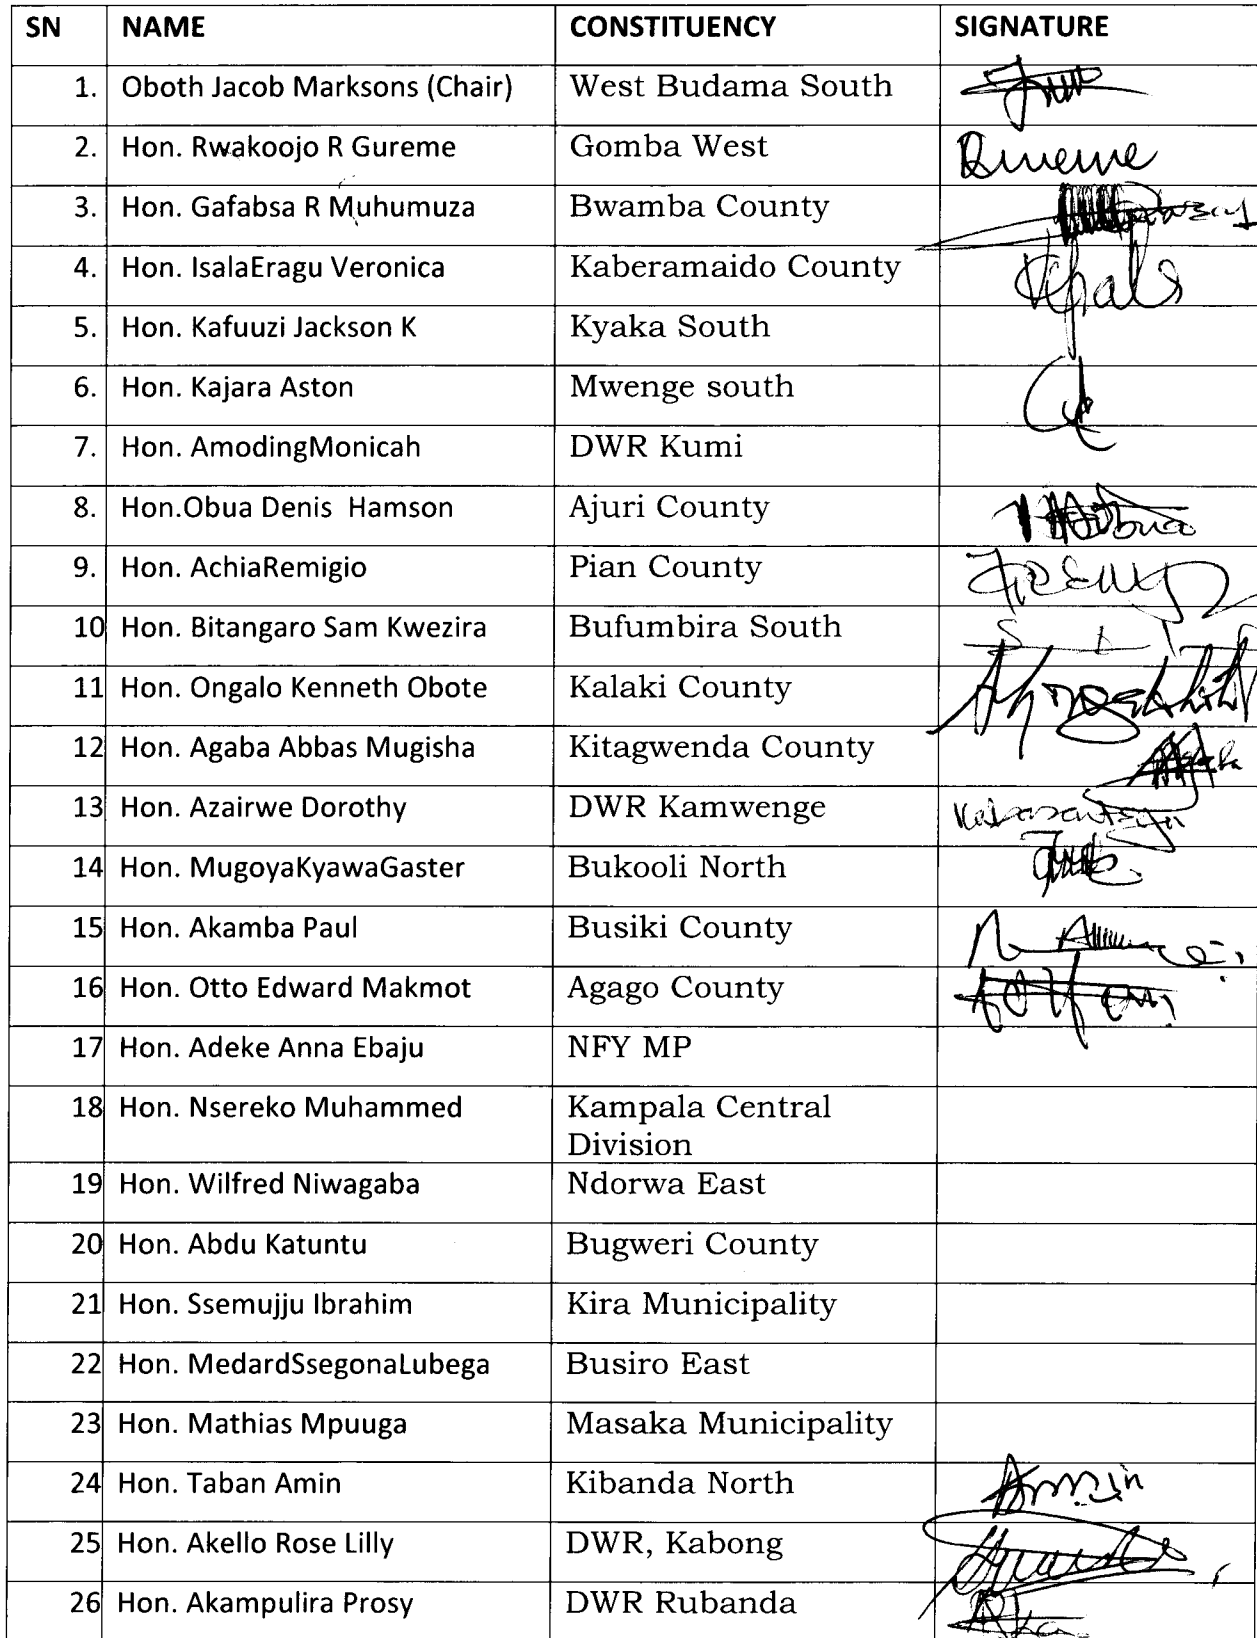 SN NAME CONSTITUENCY SIGNATURE
1. Oboth Jacob Marksons (Chair) West Budama South
2. Hon. Rwakoojo R Gureme Gomba West
3. Hon. Gafabsa R Muhumuza Bwamba County
4. Hon. IsalaEragu Veronica Kaberamaido County
5. Hon. Kafuuzi Jackson K Kyaka South
6. Hon. Kajara Aston Mwenge south
7. Hon. AmodingMonicah DWR Kumi
8. Hon.Obua Denis Hamson Ajuri County
9. Hon. AchiaRemigio Pian County
10 Hon. Bitangaro Sam Kwezira Bufumbira South
11 Hon. Ongalo Kenneth Obote Kalaki County
12 Hon. Agaba Abbas Mugisha Kitagwenda County
13 Hon. Azairwe Dorothy DWR Kamwenge
14 Hon. MugoyaKyawaGaster Bukooli North
15 Hon. Akamba Paul Busiki County
16 Hon. Otto Edward Makmot Agago County
17 Hon. Adeke Anna Ebaju NFY MP
18 Hon. Nsereko Muhammed Kampala Central
Division
19 Hon. Wilfred Niwagaba Ndorwa East
20 Hon. Abdu Katuntu Bugweri County
21 Hon. Ssemujju Ibrahim Kira Municipality
22 Hon. MedardSsegonaLubega Busiro East
23 Hon. Mathias Mpuuga Masaka Municipality
24 Hon. Taban Amin Kibanda North
25 Hon. Akello Rose Lilly DWR, Kabong
26 Hon. Akampulira Prosy DWR Rubanda